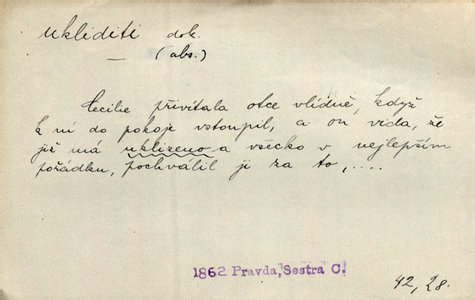 ukliditi dok.
— (abs.)
Cecilie přivítala otce vlídně, když
k ní do pokoje vstoupil, a on vida, že
již má uklizeno a všecko v nejlepším
pořádku, pochválil ji za to, ....
1862 Pravda, Sestra C.
42, 28.